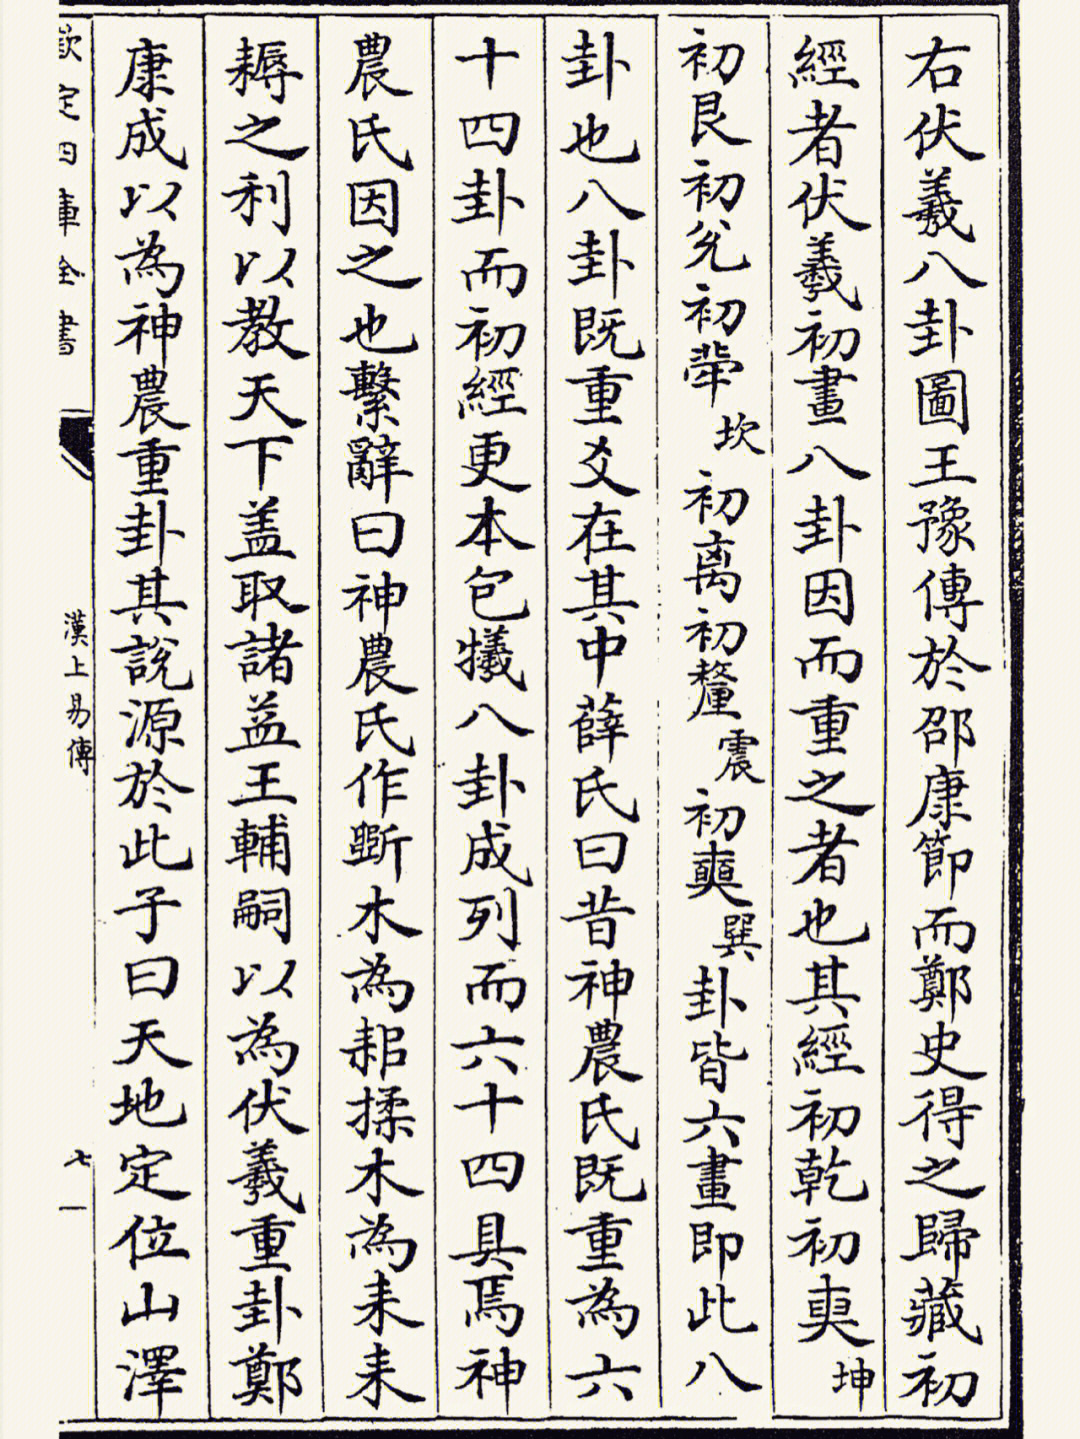 右伏羲八卦圖王豫傳於邵康節而鄭史得之歸藏初
經者伏羲初畫八卦因而重之者也其經初乾初坤
初艮初兊初犖坎初离初釐震初奭巽卦皆六畫即此八
卦也八卦既重爻在其中薛氏曰昔神農氏既重為六
十四卦而初經更本包犧八卦成列而六十四具焉神
農氏因之也繫辭曰神農氏作斲木為耜揉木為耒耒
耨之利以教天下盖取諸益王輔嗣以為伏羲重卦鄭
康成以為神農重卦其說源於此子曰天地定位山澤
欽定四庫全書
漢上易傳
七